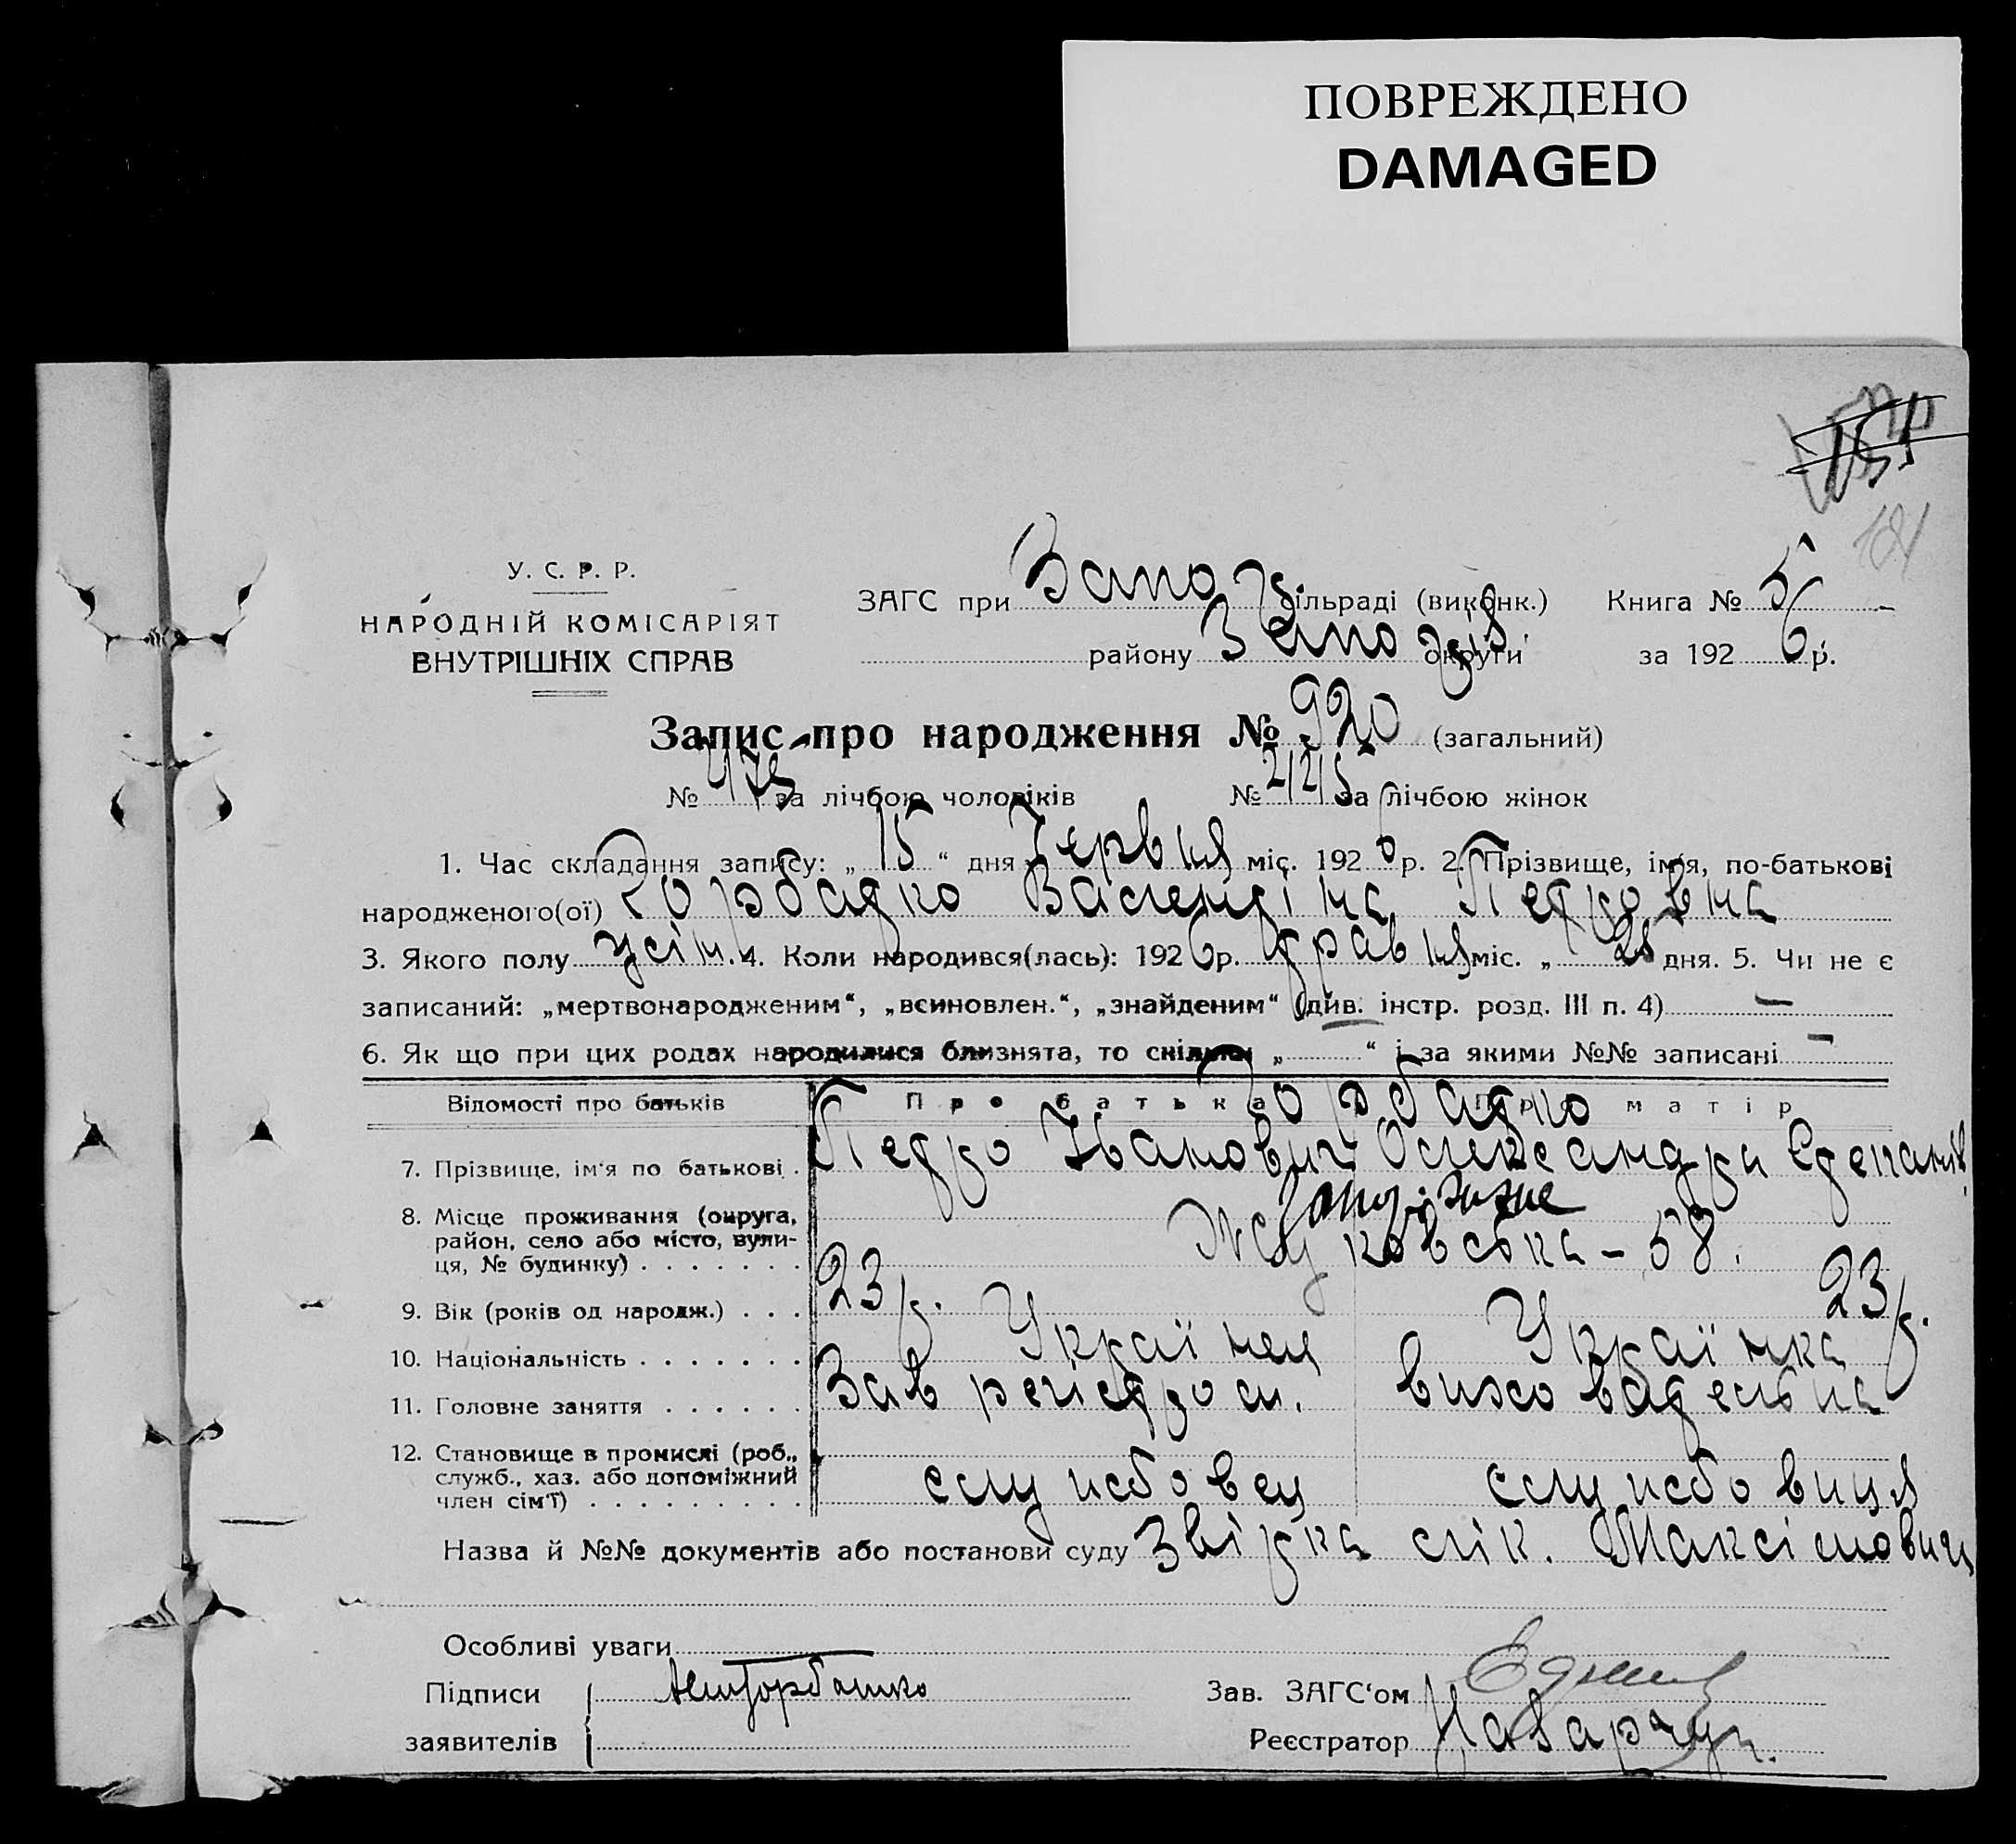 ПОВРЕЖДЕНО
DAMAGED
У. С. Р. Р.
НАРОДНІЙ КОМІСАРІЯТ
ВНУТРІШНІХ СПРАВ
ЗАГС при Запоріз сільраді (виконк.) Книга № 5
району Запоріз округи за 1926 р.
Запис про народження № 920 (загальний)
№ за лічбою чоловіків № за лічбою жінок
1. Час складання запису: „ 15 “ дня Червня міс. 1926 р. 2. Прізвище, ім'я, по-батькові
народженого(ої) Горбатко Валентіна Петровна
3. Якого полу жін. 4. Коли народився(лась): 1926 р. травня міс. „ 28 дня. 5. Чи не є
записаний: „мертвонародженим“, „всиновлен.“, „знайденим“ (див. інстр. розд. III п. 4) —
6. Як що при цих родах народилися близнята, то скільки „ “ і за якими №№ записані —
Відомості про батьків Про батька Про матір
Горбатко
7. Прізвище, ім'я по батькові . Петро Іванович Олександра Степанів
8. Місце проживання (округа, район, село або місто, вулиця, № будинку) . . . . . . . Запоріжжє
Жуковська – 58.
9. Вік (років од народж.) . . . 23 р. 23 р.
10. Національність . . . . . . . Українец Українка
11. Головне заняття . . . . . . Зав регістром. вихователька
12. Становище в промислі (роб., служб., хаз. або допоміжний член сім'ї) . . . . . . . . . службовец службовиця
Назва й №№ документів або постанови суду Звірка лік. Максімович
Особливі уваги
Підписи Горбатко Зав. ЗАГС'ом
заявителів Реєстратор